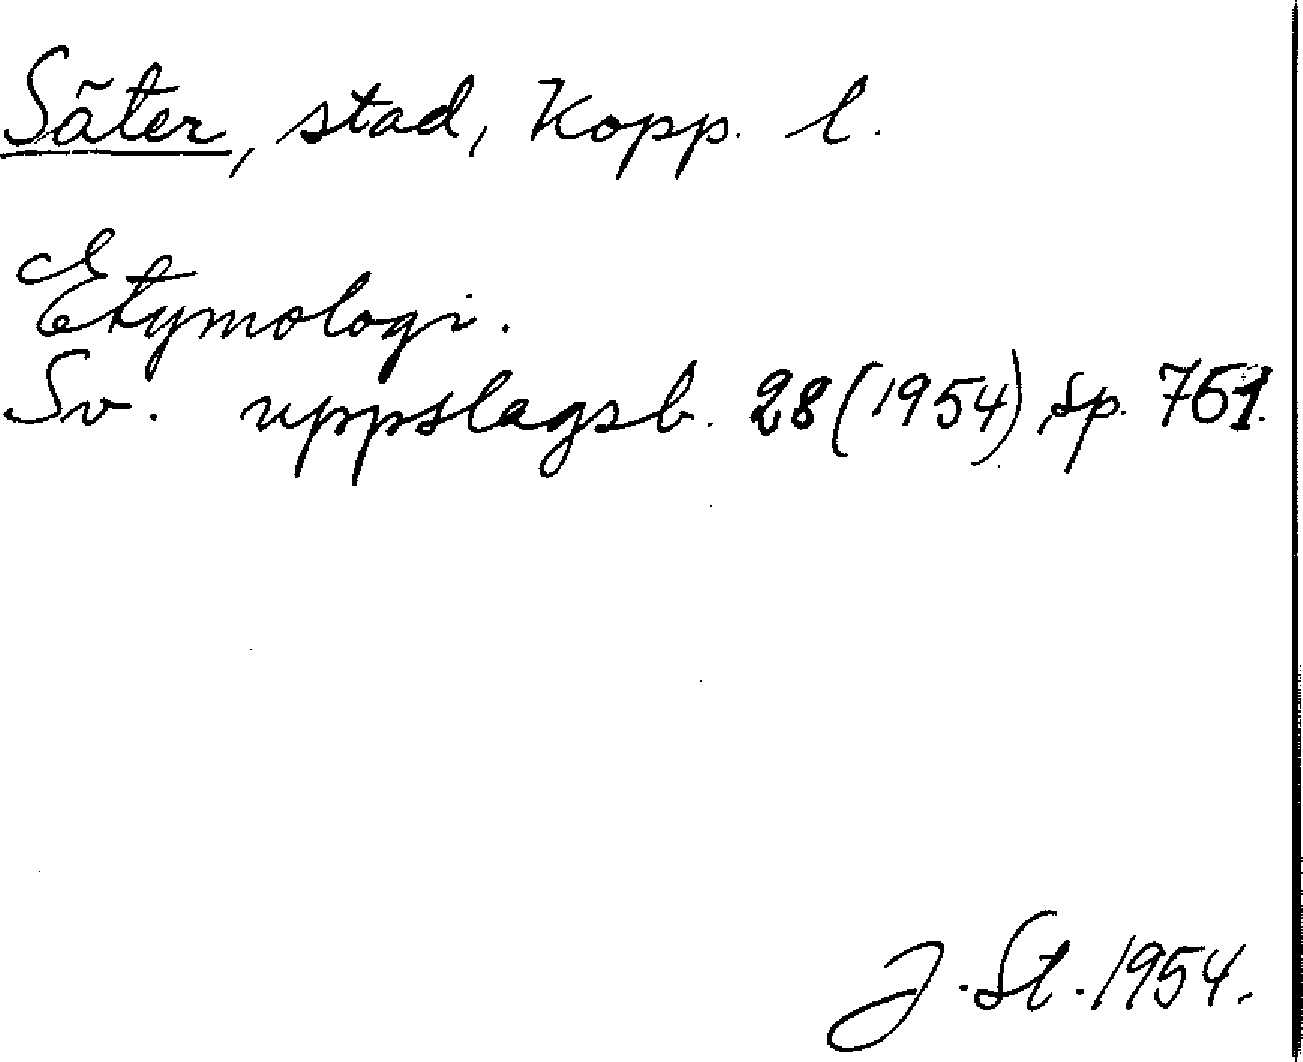 Säter, stad, Kopp. l.
Etymologi.
Sv. uppslagsb. 28 (1954) sp. 761.
J. St. 1954.